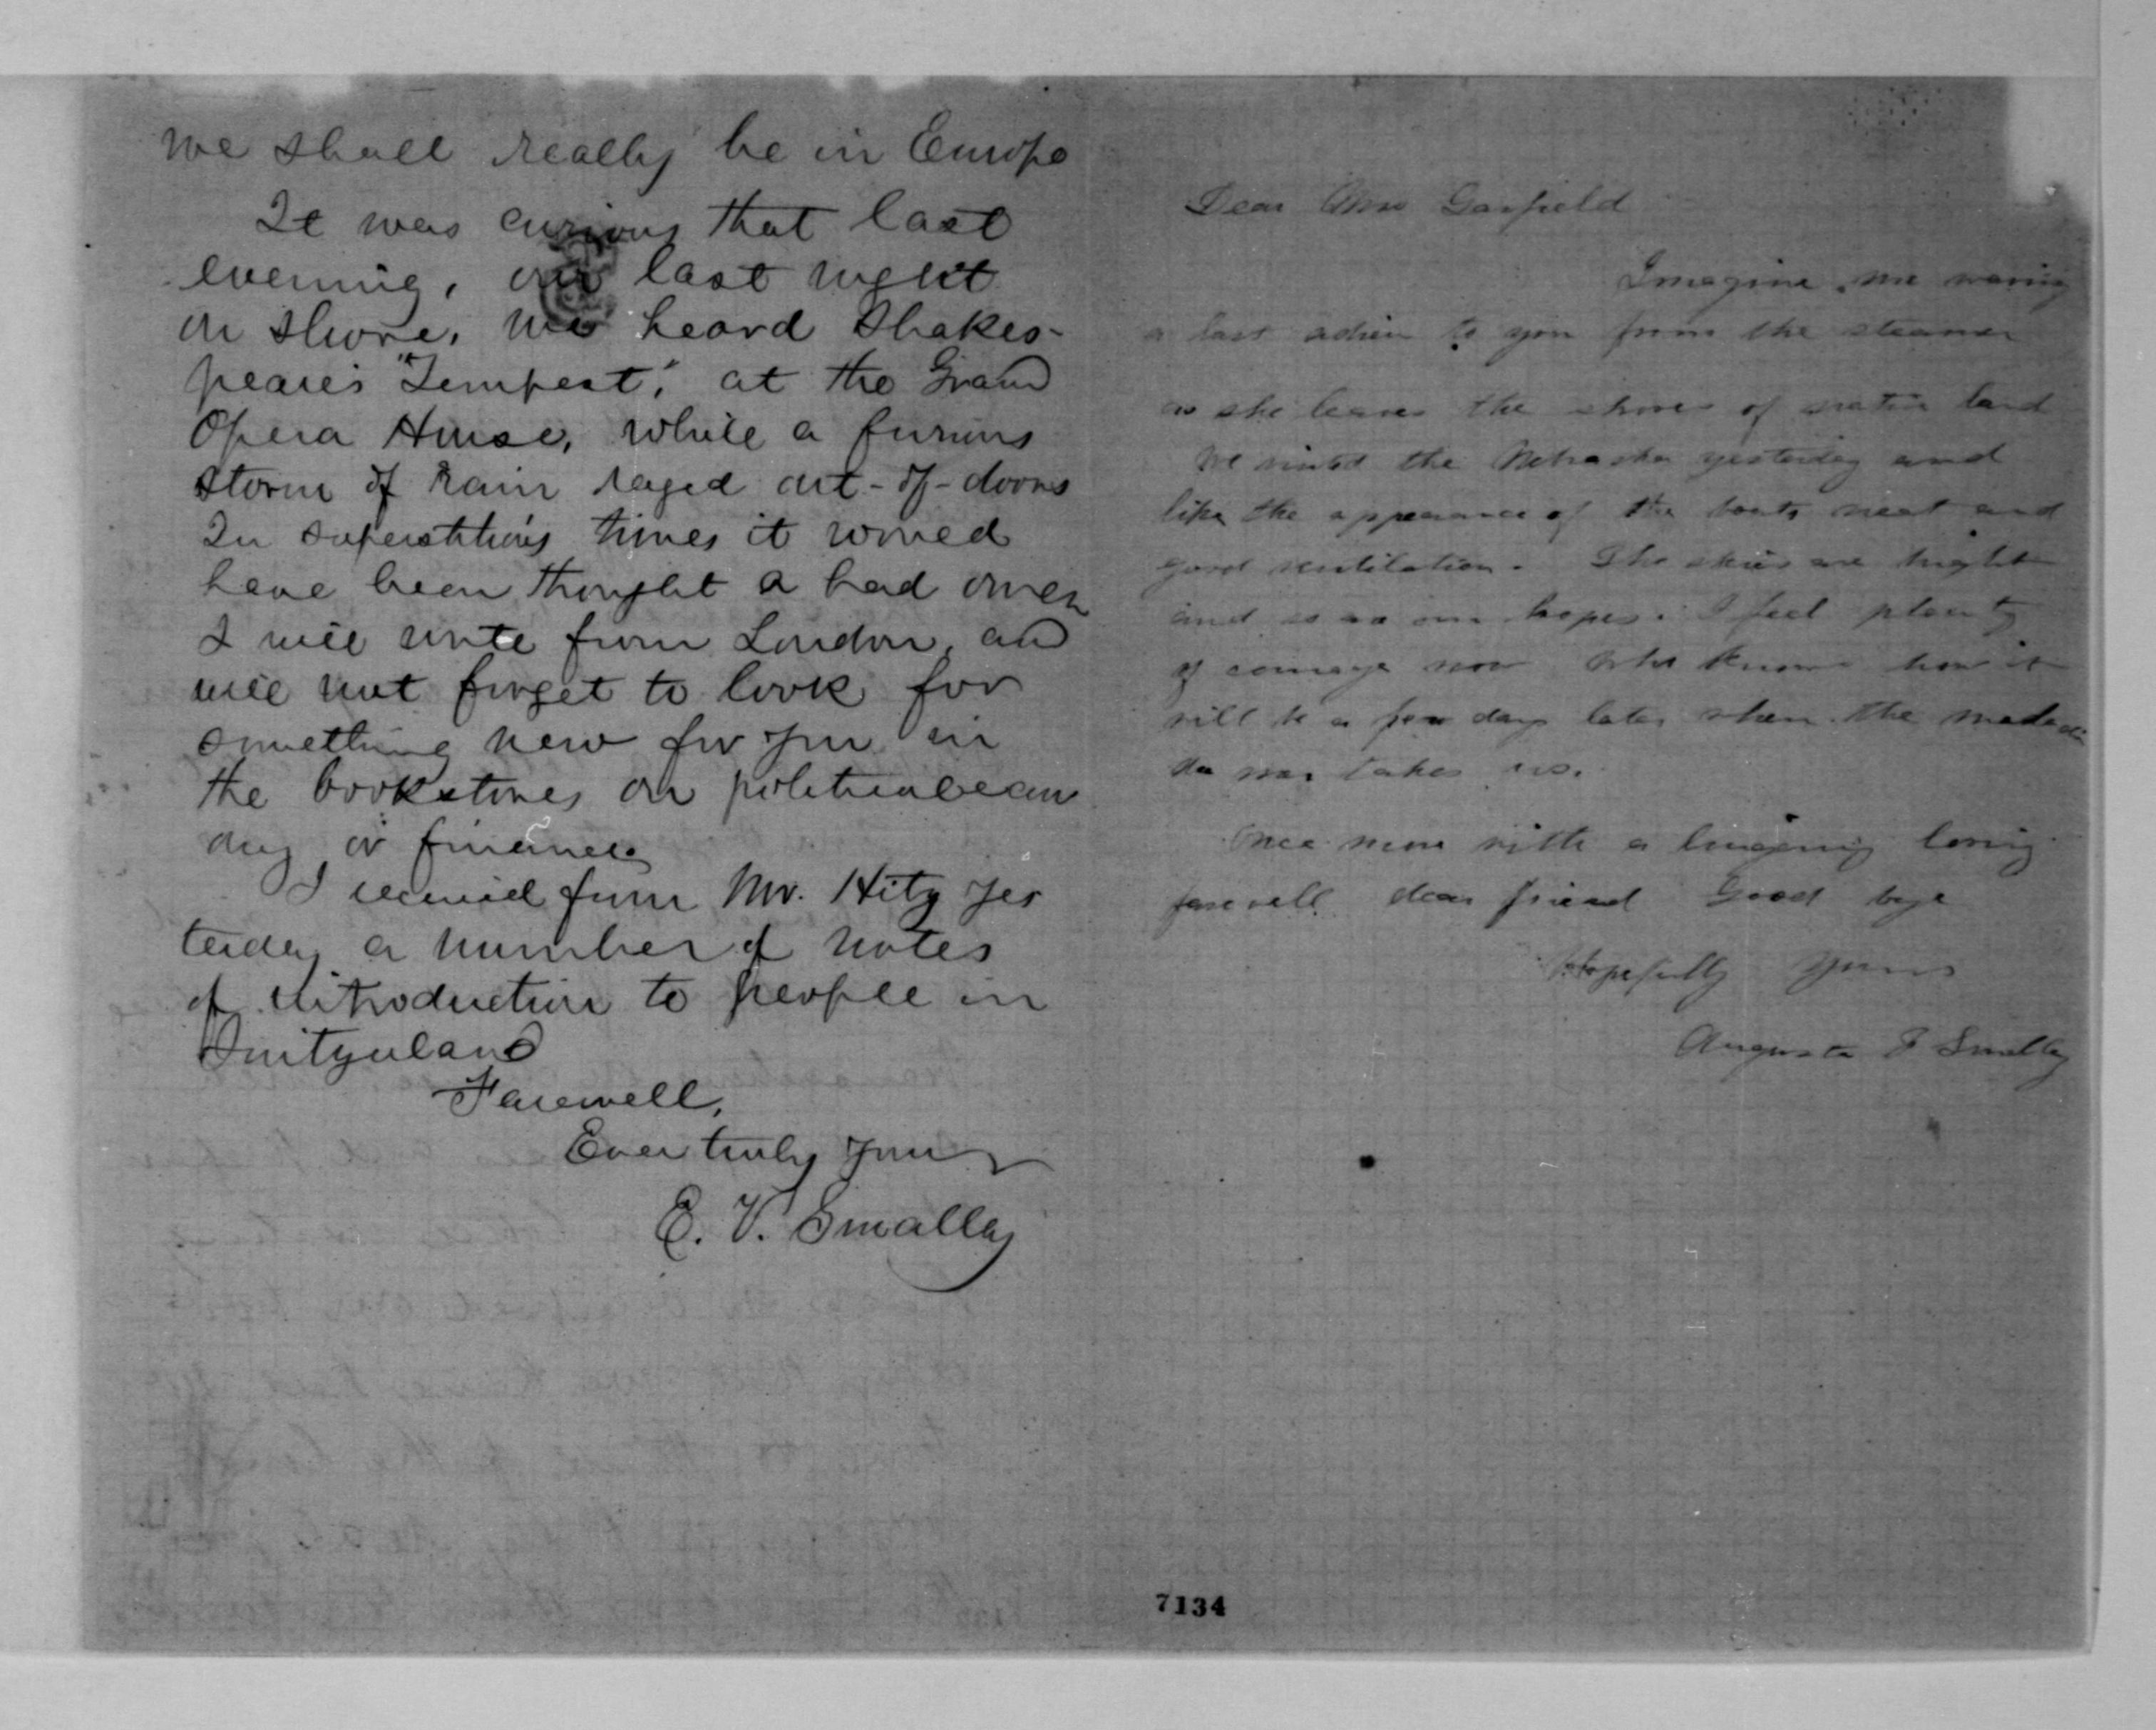 we shall really be in Europe
It was curious that last
evening, our last night
on shore, we heard Shakes-
peare's "Tempest," at the Grand
Opera House, while a furious
storm of rain raged out-of-doors
In superstitious times it would
have been thought a bad omen
I will write from London, and
will not forget to look for
something new for you in
the bookstores on political econ
omy or finance
I received from Mr. Hitz yes
terday a number of notes
of introduction to people in
Switzerland
Farewell,
Ever truly yours
E. V. Smalley
Dear Mrs Garfield
Imagine me waving
a last adieu to you from the steamer
as she leaves the shores of native land
We visited the Nebraska yesterday and
like the appearance of the boat, neat and
good ventilation. The skies are bright
and so are our hopes. I feel plenty
of courage now who knows how it
will be a few days later when the malade
de mer takes us.
Once more with a lingering loving
farewell dear friend Good bye
Hopefully yours
Augusta Smalley
7134